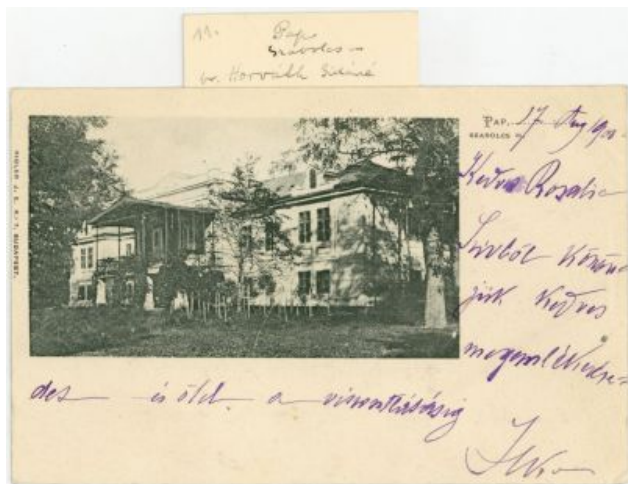 11. Pap
Szabolcs m
br. Horváth
PAP,
SZABOLCS M.
17 Aug 900
Kedves Rosalia
Szivből köszön-
jük kedves
megemlékezé-
des és ölel a viszontlátásig
DIVALD
BUDAPEST.